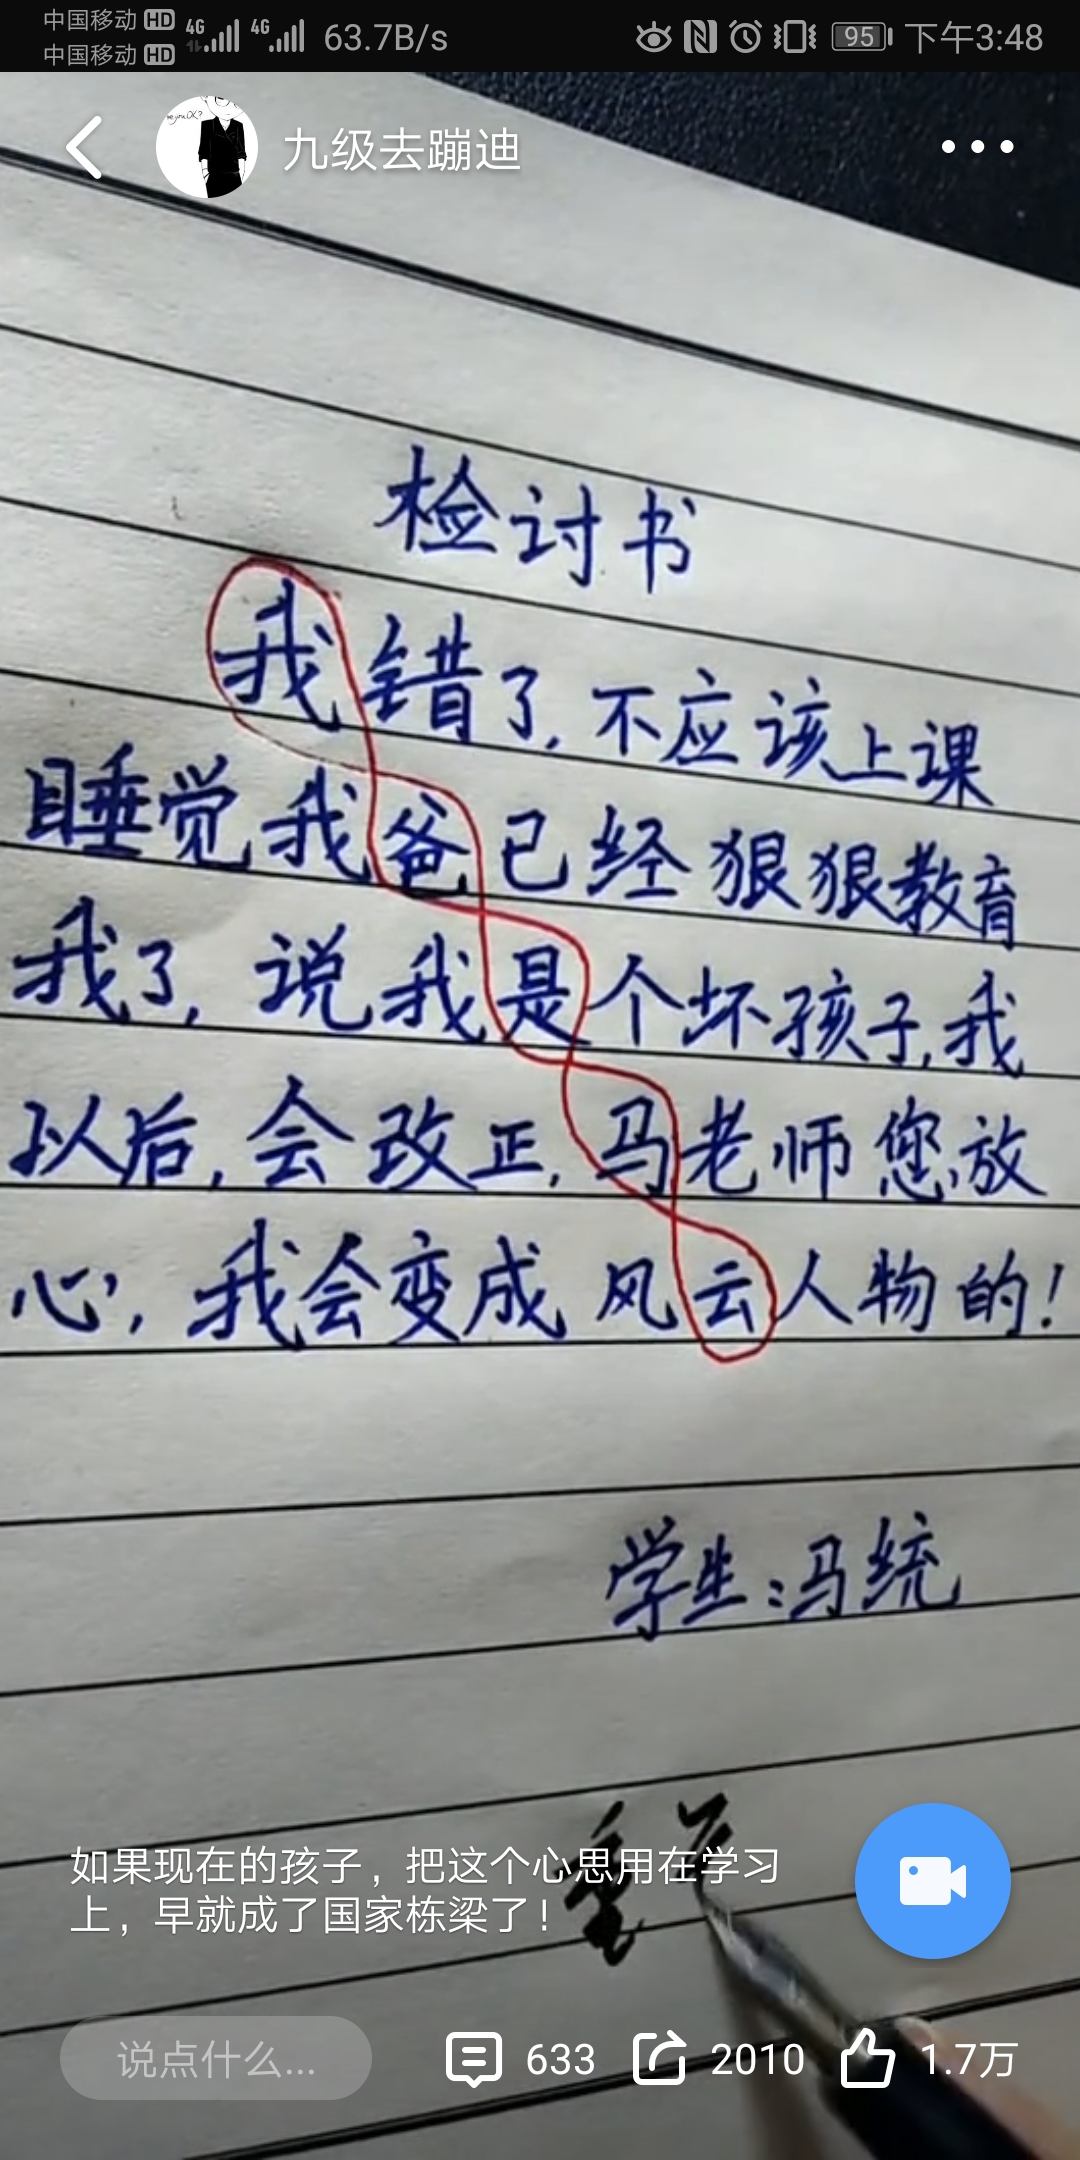 中国移动 HD 4G 4G 63.7B/s 95 下午3:48
中国移动 HD
九级去蹦迪
检讨书
我错了,不应该上课
睡觉我爸已经狠狠教育
我了,说我是个坏孩子,我
以后,会改正,马老师您放
心,我会变成风云人物的!
学生:马统
重
如果现在的孩子，把这个心思用在学习
上，早就成了国家栋梁了！
说点什么... 633 2010 1.7万